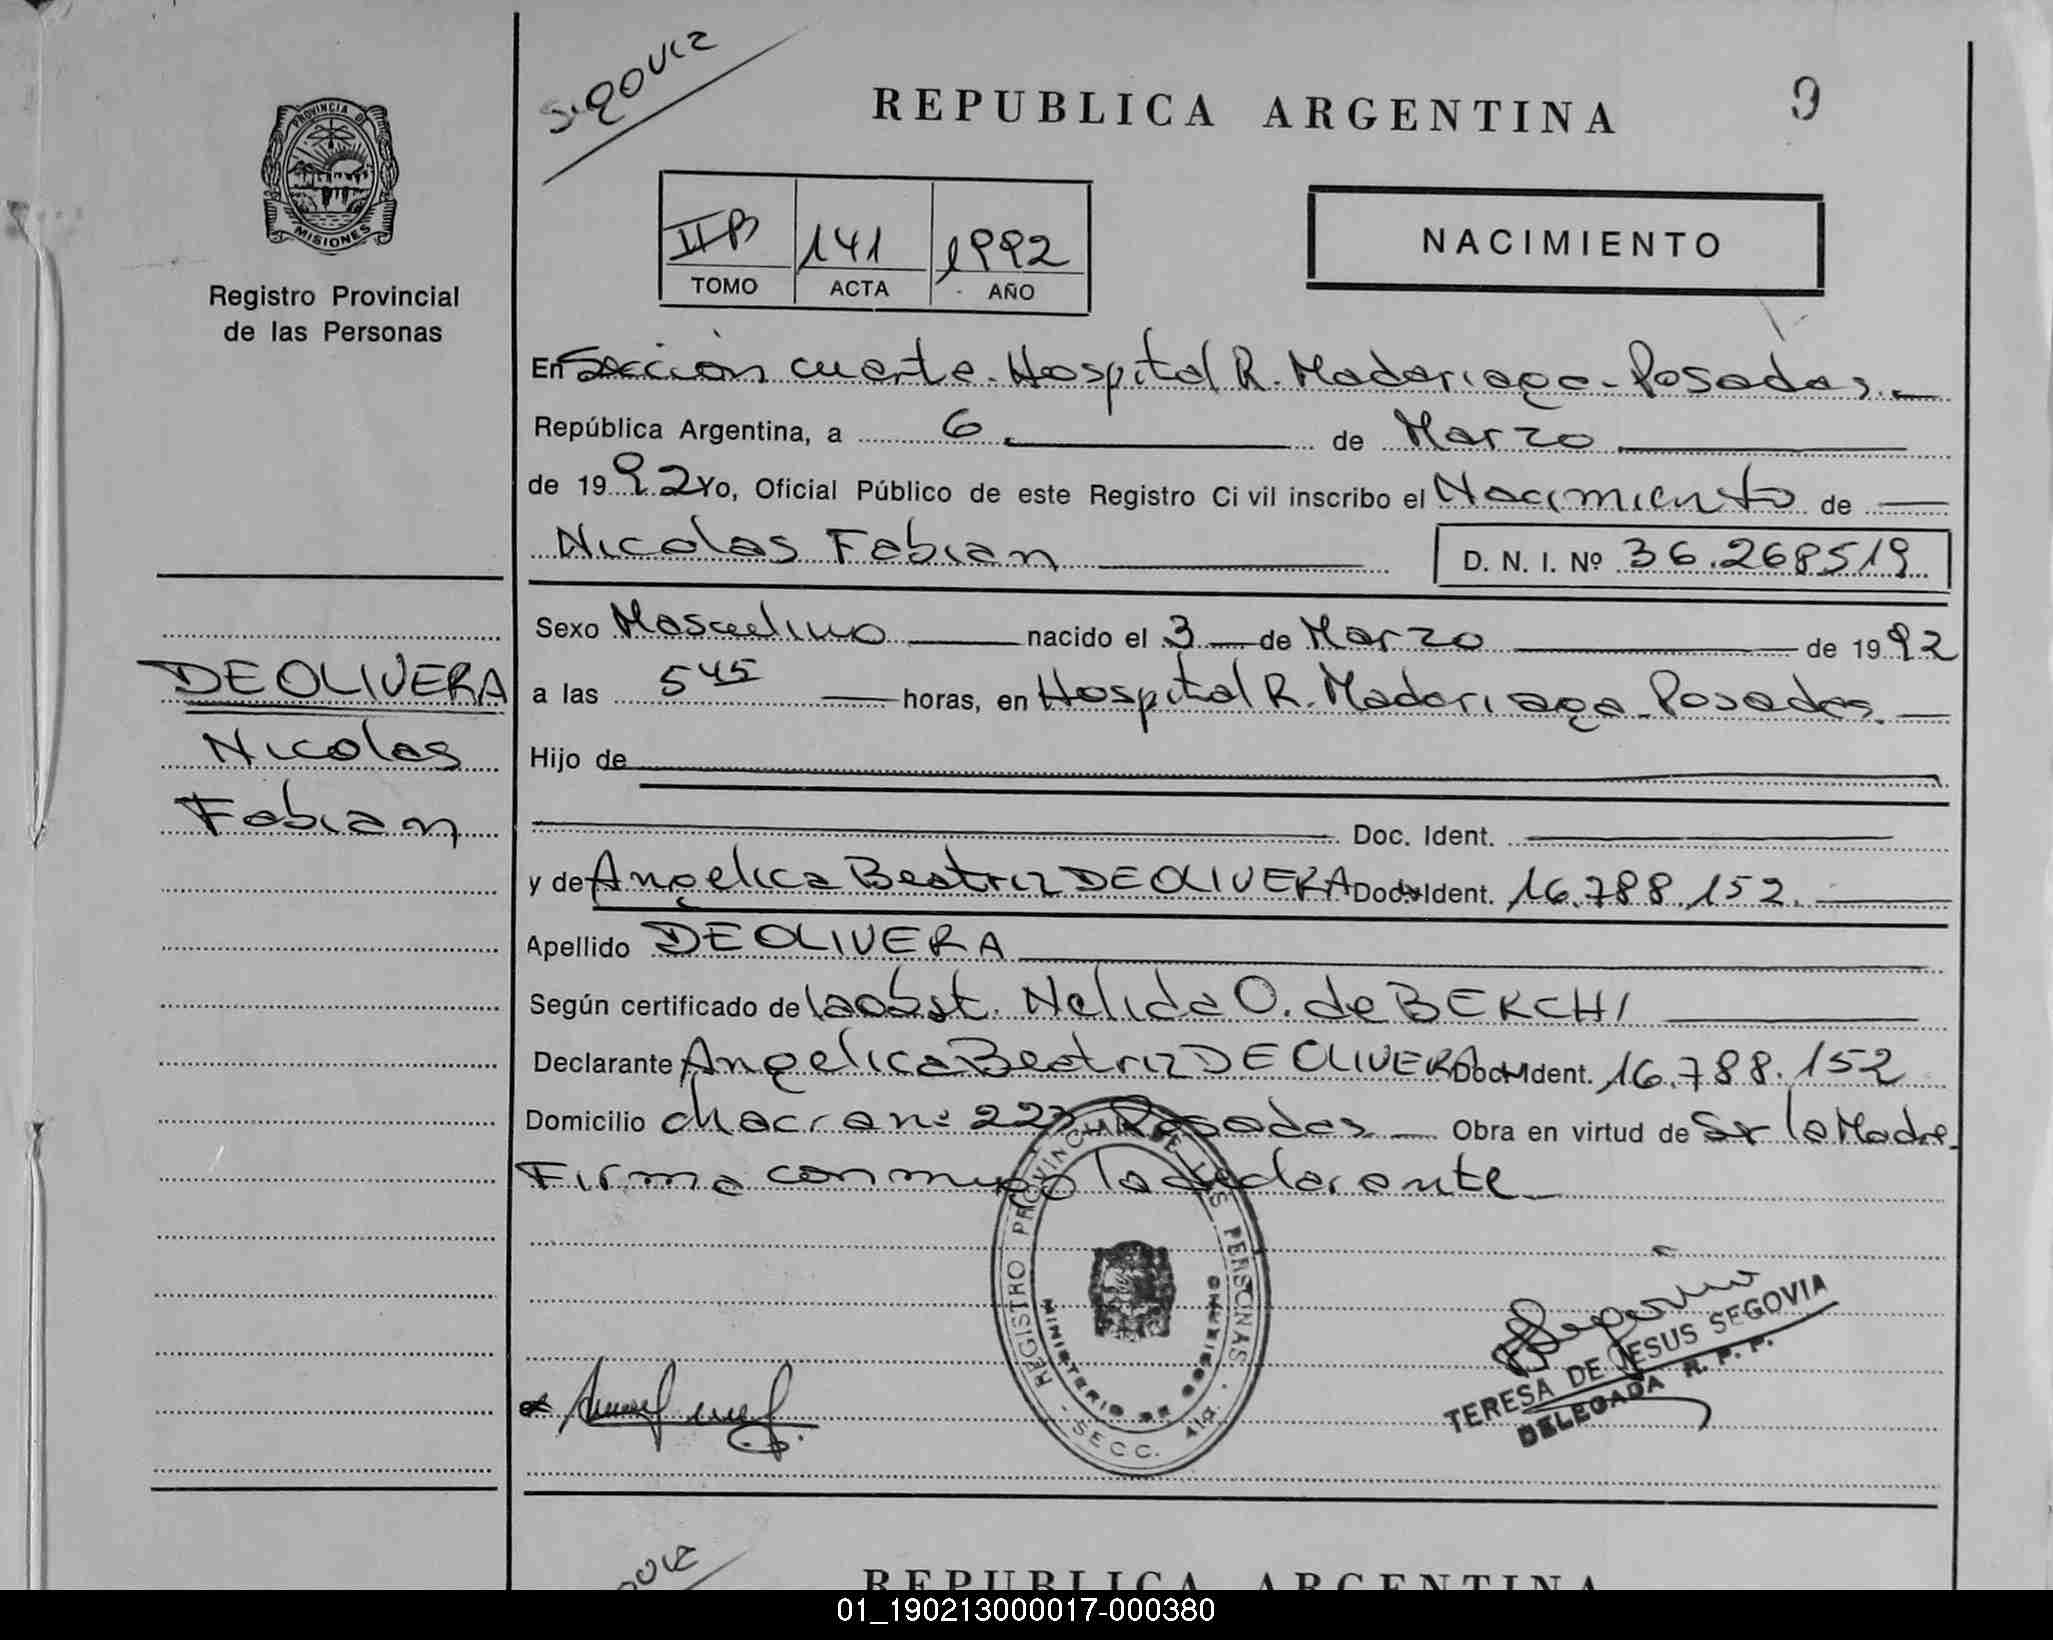 REPUBLICA ARGENTINA
9
PROVINCIA DE
MISIONES
Registro Provincial
de las Personas
IIB 141 1992
TOMO ACTA AÑO
NACIMIENTO
En Sección cuarta. Hospital R. Madariaga - Posadas.
República Argentina, a 6 de Marzo
de 1992 Yo, Oficial Público de este Registro Civil inscribo el Nacimiento de
Nicolas Fabian D. N. I. Nº 36.268519
Sexo Masculino nacido el 3 de Marzo de 1992
DE OLIVERA
Nicolas
Fabian
a las 5 45 horas, en Hospital R. Madariaga - Posadas.
Hijo de
Doc. Ident.
y de Angelica Beatriz DE OLIVERA Doc. Ident. 16.788.152.
Apellido DE OLIVERA
Según certificado de la obst. Nelida O. de BERCHI
Declarante Angelica Beatriz DE OLIVERA Doc. Ident. 16.788.152
Domicilio chacra nº 223 Posadas Obra en virtud de Ser la Madre.
Firma conmigo la declarante
REGISTRO PROVINCIAL DE LAS PERSONAS
MINISTERIO DE GOBIERNO
SECC. 4ta.
TERESA DE JESUS SEGOVIA
DELEGADA R. P. P.
REPUBLICA ARGENTINA
01_190213000017-000380